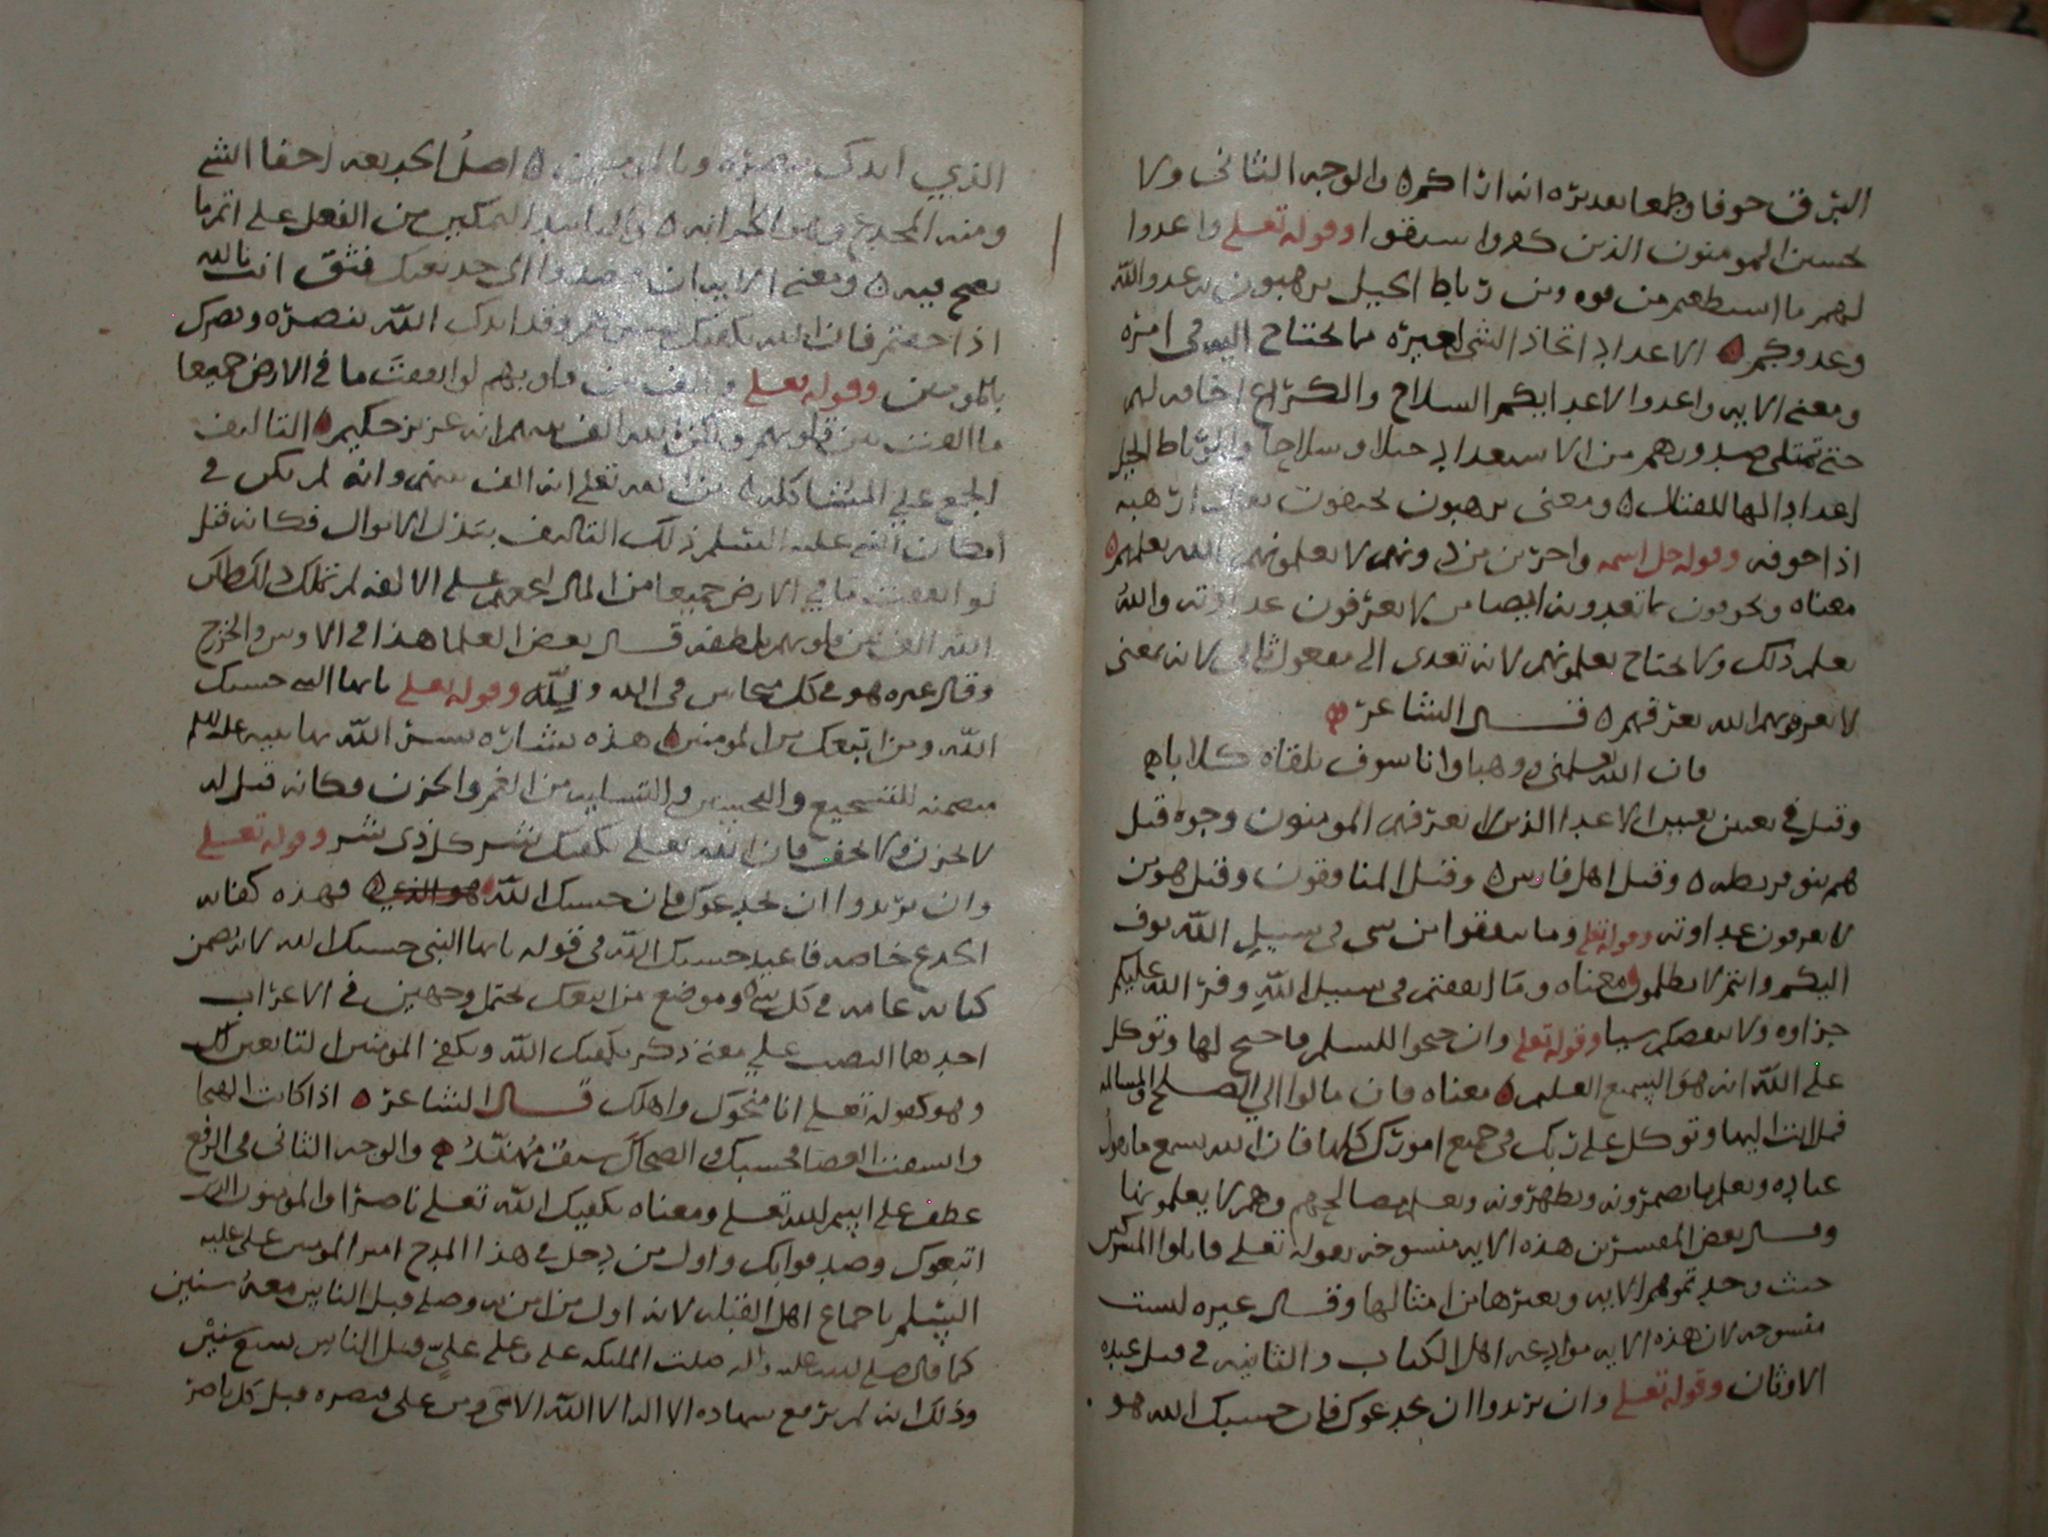 البرق خوفا وطمعا بعديره انه اراكم ۞ والوجه الثاني ولا
يحسبن المومنون الذين كفروا سبقوا وقوله تعلى واعدوا
لهم ما استطعتم من قوه ومن رباط الخيل يرهبون به عدو الله
وعدوكم ۞ الاعداد اتخاذ الشي لغيره مما يحتاج اليه في امره
ومعنى الايه واعدوا لاعدايكم السلاح والكراع اخافه لهم
حتى تمتلى صدورهم من الاستعداد خيلا وسلاحا والرباط الخيل
اعدادا لها للقتال ۞ ومعنى يرهبون يخيفون يقال ارهبه
اذا خوفه وقوله جل اسمه واخرين من دونهم لا يعلمونهم الله يعلمهم ۞
معناه ويخوفون بما تعدونه ايضا من لا يعرفون عداوته والله
يعلم ذلك ولا يحتاج يعلمونهم لانه تعدى الى مفعول ثاني لانه بمعنى
لا يعرفونهم الله يعرفهم ۞ قال الشاعر
فان الله يعلمني ووهبا وانا سوف يلقاه كلانا
وقيل في تعيين الاعدا الذين لا يعرفهم المومنون وجوه قيل
هم بنو قريظه ۞ وقيل اهل فارس ۞ وقيل المنافقون وقيل هو من
لا يعرفون عداوته وقوله تعلى وما تنفقوا من شي في سبيل الله يوف
اليكم وانتم لا تظلمون معناه وما انفقتم في سبيل الله وفر الله عليكم
جزاوه ولا ينقصكم شيا وقوله تعلى وان جنحوا للسلم فاجنح لها وتوكل
على الله انه هو السميع العليم ۞ معناه فان مالوا الي الصلح والمسالمه
فمل انت اليها وتوكل على ربك في جميع امورك كلها فان الله يسمع ما يقول
عباده ويعلم ما يضمرونه ويظهرونه ويعلم مصالحهم وهم لا يعلمونها
وقال بعض المفسرين هذه الايه منسوخه بقوله تعلى قاتلوا المشركين
حيث وجدتموهم الايه وبغيرها من امثالها وقال غيره ليست
منسوخه لان هذه الايه موادعه اهل الكتاب والثانيه في قتل عبده
الاوثان وقوله تعلى وان يريدوا ان يخدعوك فان حسبك الله هو
الذي ايدك بنصره وبالمومنين ۞ اصل الخديعه اخفا الشي
ومنه المخدع وهي الخزانه ۞ والتاييد التمكين من الفعل على اتم ما
يصح فيه ۞ ومعنى الايه ان قصدوا الى خديعتك فثق انت بالله
اذا خفتم فان الله يكفيك وقد ايدك الله بنصره ونصرك
بالمومنين وقوله تعلى والف بين قلوبهم لو انفقت ما في الارض جميعا
ما الفت بين قلوبهم ولكن الله الف بينهم انه عزيز حكيم ۞ التاليف
الجمع علي المشاكله ۞ بين الله تعلى انه الف بينهم وانه لم يكن في
امكان النبي عليه السلم ذلك التاليف ببذل الاموال فكانه قيل
لو انفقت ما في الارض جميعا من المال لجمعهم على الالفه لم تملك ذلك لكن
الله الف بين قلوبهم بلطفه قال بعض العلما هذا في الاوس والخزرج
وقال غيره هو في كل متحابين في الله ولله وقوله تعلى يايها النبي حسبك
الله ومن اتبعك من المومنين ۞ هذه بشاره بشر الله بها نبيه عليه السلم
متضمنه للتشجيع والتحبيب والتسليه من الغم والحزن فكانه قيل له
لا تحزن ولا تخف فان الله تعلى يكفيك شر كل ذي شر وقوله تعلى
وان يريدوا ان يخدعوك فان حسبك الله هو الذي ۞ فهذه كفايه
الخدع خاصه فاعيد حسبك الله في قوله يايها النبي حسبك الله لانه تضمن
كفايه عامه في كل شي ۞ وموضع من اتبعك يحتمل وجهين في الاعراب
احدهما النصب على معنى ذكر يكفيك الله ويكفى المومنين التابعين لك
وهو كقوله تعلى انا منجوك واهلك قال الشاعر ۞ اذا كانت الهيجا
وانشقت العصا فحسبك والضحاك سيف مهند ۞ والوجه الثاني في الرفع
عطف على اسم الله تعلى ومعناه يكفيك الله تعلى ناصرا والمومنون الذين
اتبعوك وصدقوا بك واول من دخل في هذا المدح امير المومنين على عليه
السلم باجماع اهل القبله لانه اول من امن به وصلى قبل الناس معه سنين
كما قال صلى الله عليه واله صلت المليكه علي وعلى علي قبل الناس سبع سنين
وذلك انه لم يرفع شهاده الا اله الا الله الا مني ومن على فنصره قبل كل ناصر